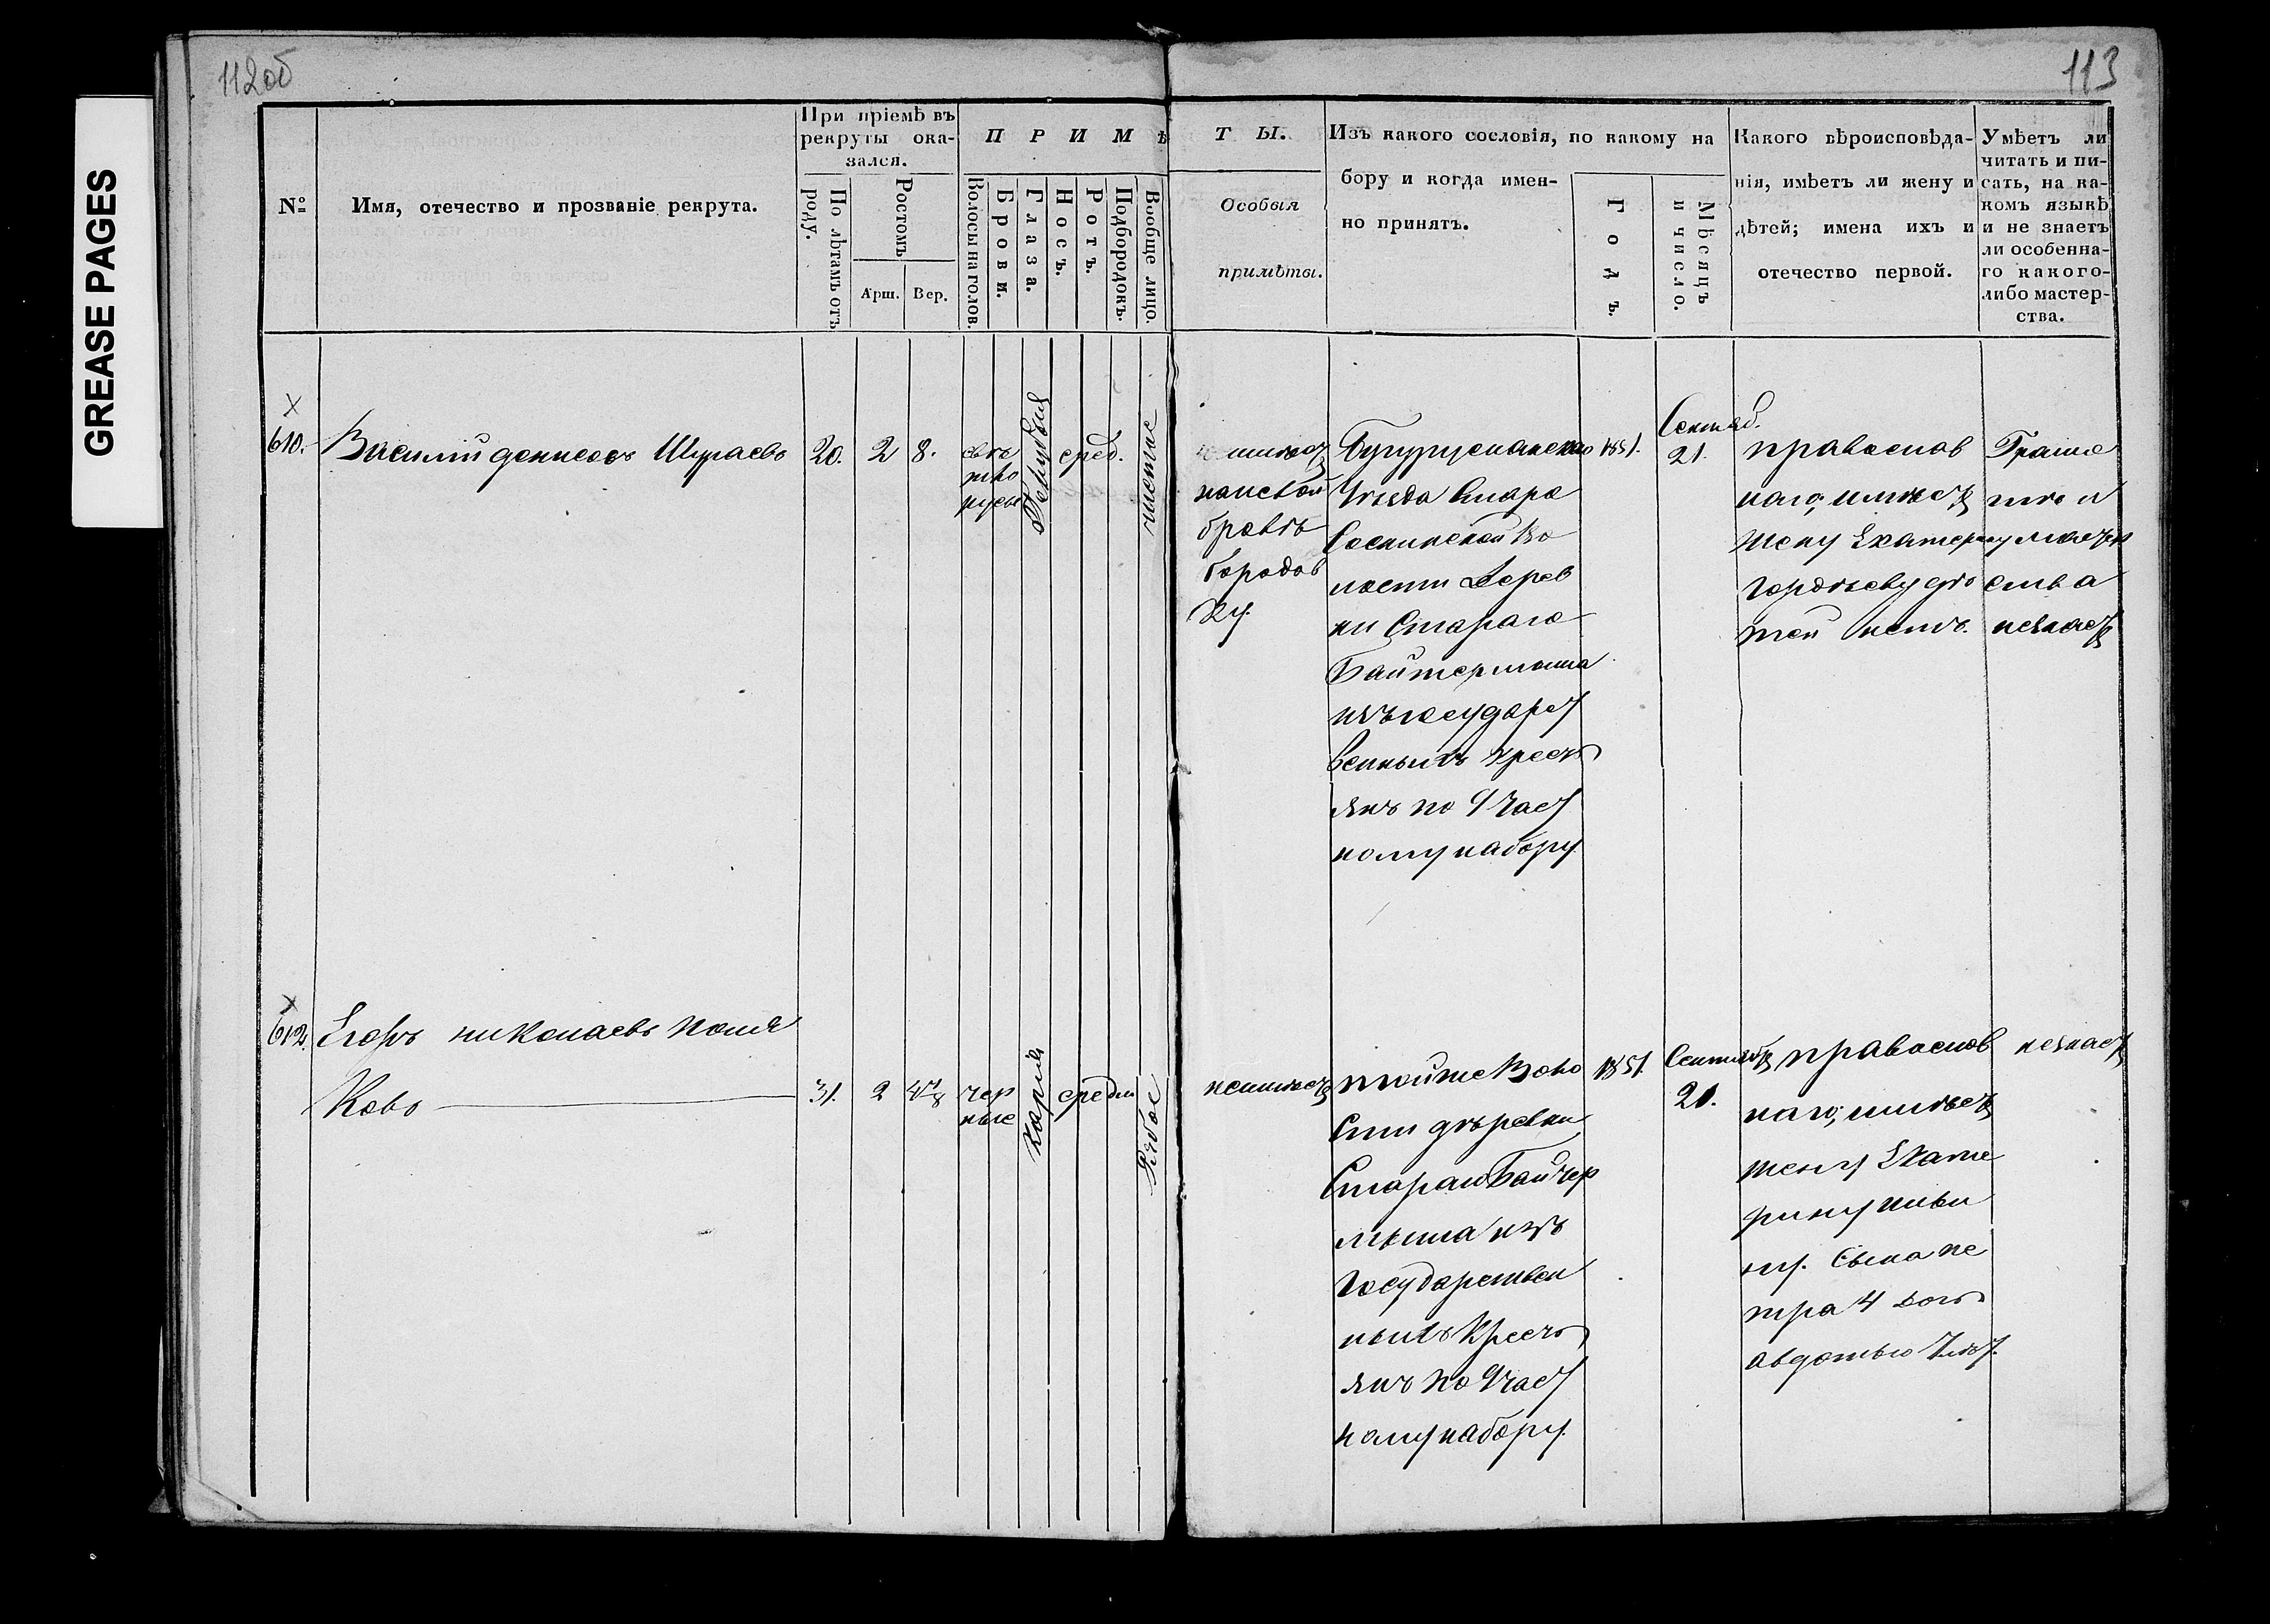 GREASE PAGES
112об
113
№
Имя, отечество и прозваніе рекрута.
При пріемѣ въ
рекруты ока-
зался.
По лѣтамъ отъ
роду.
Ростомъ
Арш. Вер.
П Р И М Ѣ
Волосы на голов.
Брови.
Глаза.
Носъ.
Ротъ.
Подбородокъ.
Вообще лицо.
Т Ы.
Особыя
примѣты.
Изъ какого сословія, по какому на
бору и когда имен-
но принятъ.
Годъ.
Мѣсяцъ
и число.
Какого вѣроисповѣда-
нія, имѣетъ ли жену и
дѣтей; имена ихъ и
отечество первой.
Умѣетъ ли
читать и пи-
сать, на ка-
комъ языкѣ
и не знаетъ
ли особенна-
го какого-
либо мастер-
ства.
610.
Василий денисовъ Шураевъ
20.
2
8.
свѣ
тло
русые
Голубыя
сред.
чистое
имѣет
на
бровѣ
бородов
ку.
Бугурусланскаго
Уѣзда Старо
Соснинской Во
лости Дерев
ни Стараго
Байтермыша
изъ государст
венныхъ крест
янъ по 9 част
ному набору.
1851.
Сентяб.
21.
православ
наго, имѣет
жену Екатерину
Гордѣеву дѣ
тей нѣтъ.
Грамо
тѣ и
мастер
ства
незнает
612.
Егоръ николаевъ поля
ковъ
31.
2
4 7/8
чер
ные
Карія
средни
Рябое
неимѣет
тойже Воло
сти дѣревни
Стараго Байтер
мыша изъ
Государствен
ныхъ Крест
янъ по 9 част
ному набору.
1851.
Сентябр
21.
православ
наго, имѣет
жену Екате
рину
Сына пе
тра 4 дочь
авдотью 7 лѣт.
незнает